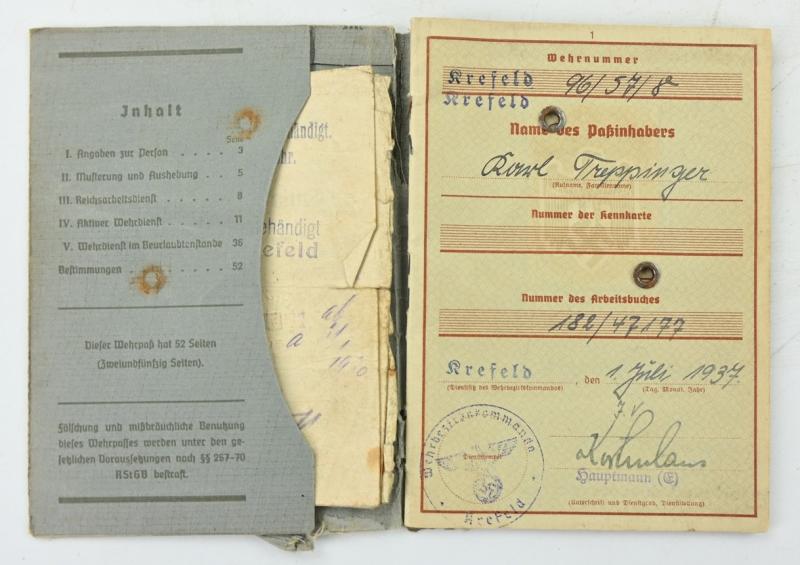 Inhalt
Seite
I. Angaben zur Person . . . . 3
II. Musterung und Aushebung . . 5
III. Reichsarbeitsdienst . . . . 8
IV. Aktiver Wehrdienst . . . . 11
V. Wehrdienst im Beurlaubtenstande 36
Bestimmungen . . . . . . . 52
Dieser Wehrpaß hat 52 Seiten
(Zweiundfünfzig Seiten).
Fälschung und mißbräuchliche Benutzung
dieses Wehrpasses werden unter den ge-
setzlichen Voraussetzungen nach §§ 267-70
RStGB bestraft.
ändigt.
hr.
ehändigt
efeld
1
Wehrnummer
Krefeld 96/57/8
Krefeld
Name des Paßinhabers
Karl Treppinger
(Rufname, Familienname)
Nummer der Kennkarte
Nummer des Arbeitsbuches
182/47177
Krefeld, den 1. Juli 1937.
(Dienstsitz des Wehrbezirkskommandos) (Tag, Monat, Jahr)
J.V.
Wehrbezirkskommando
Dienststempel
Krefeld
Hauptmann (E)
(Unterschrift und Dienstgrad, Dienststellung)